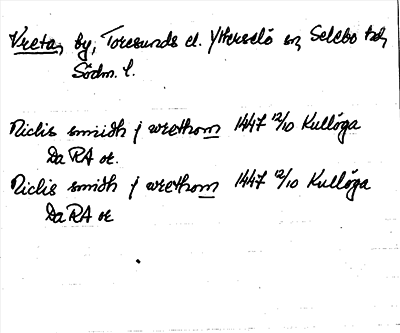 Vreta, by, Toresunds el. Ytterselö sn, Selebo hd,
Södm. l.
Niclis smidh j wrethom 1447 12/10 Kullöga
Da RA or.
Niclis smidh j wrethom 1447 12/10 Kullöga
Da RA or